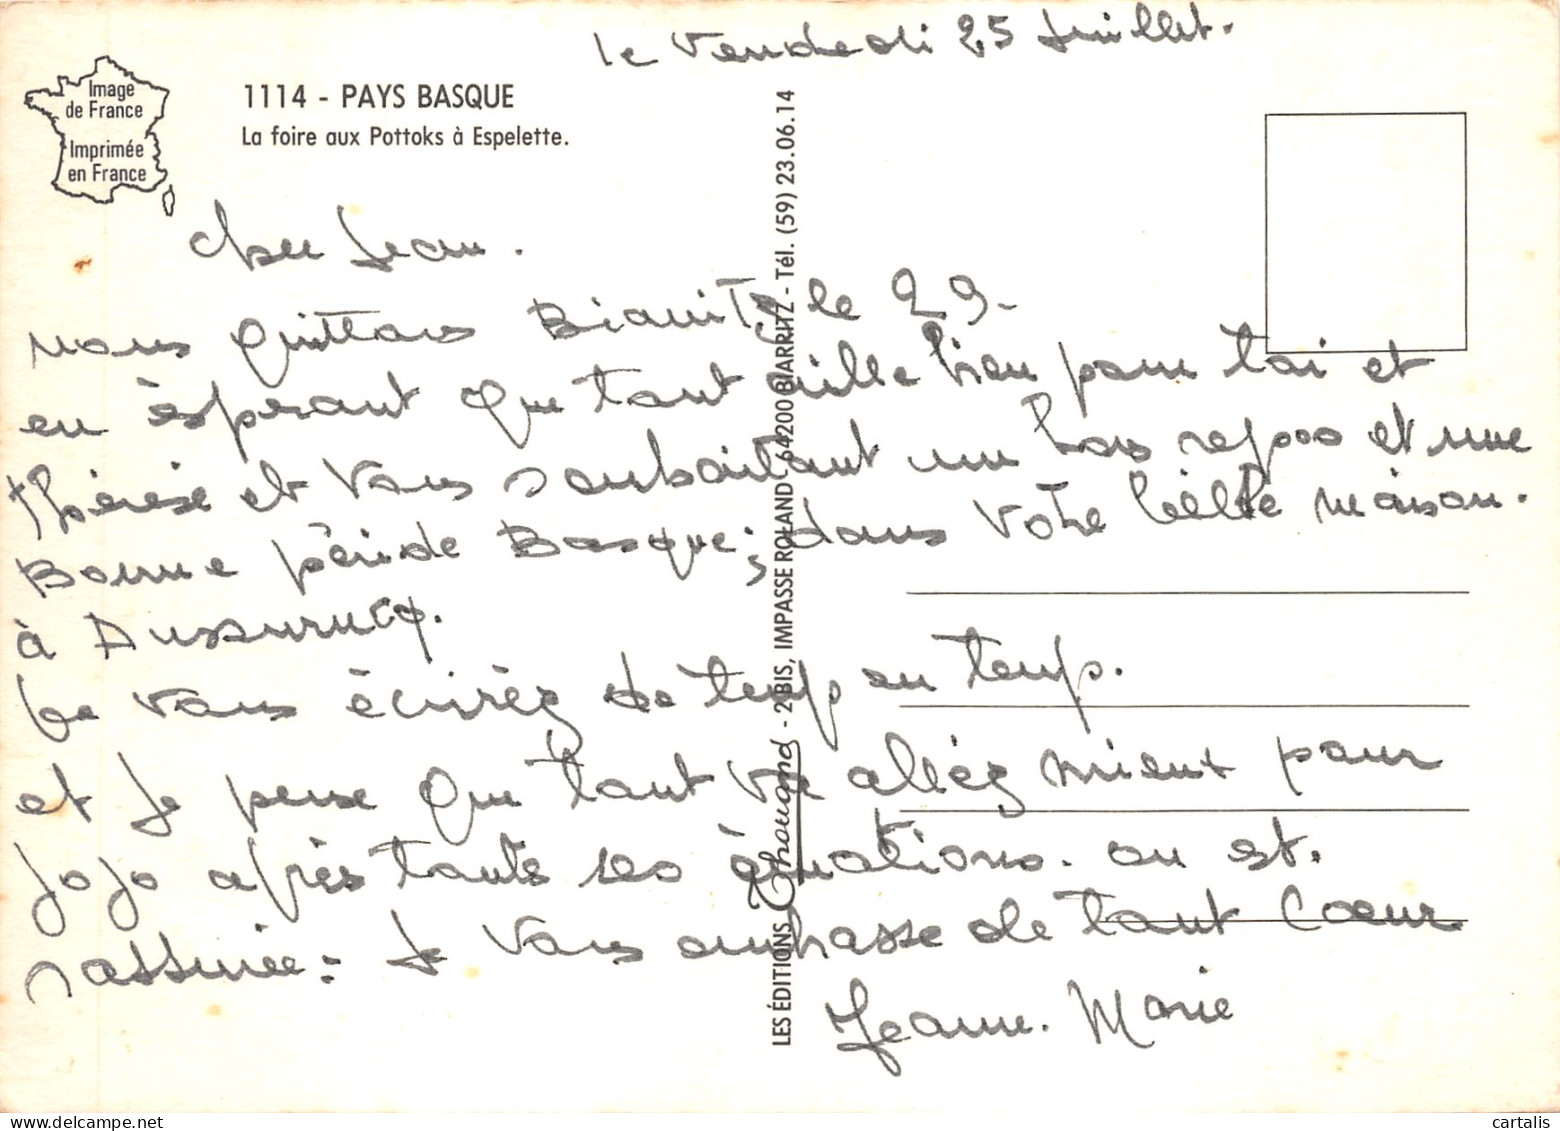 le Vendredi 25 Juillet.
Image
de France
Imprimée
en France
1114 - PAYS BASQUE
La foire aux Pottoks à Espelette.
Cher Jean.
nous quittons Biarritz le 29-
en èsperant que tout aille bien pour toi et
thérèse et vous souhaitant un bon repos et une
Bonne péride Basque; dans votre bélle maison.
à
Je vous écriréz de temp en temp.
et Je pense que tout va alléz mieux pour
Jojo après toute ses émotions. on est.
Je vous embrasse de tout Coeur
Jeanne. Marie
LES ÉDITIONS Chouand - 29 BIS, IMPASSE ROLAND - 64200 BIARRITZ - Tél. (59) 23.06.14
cartalis